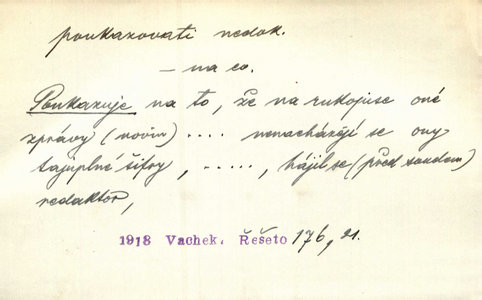 poukazovati nedok.
– na co.
Poukazuje na to, že na rukopise oné
zprávy (novin) .... nenacházejí se ony
tajuplné šifry, ....., hájil se (před soudem)
redaktor,
1918 Vachek, Řešeto 176, 21.